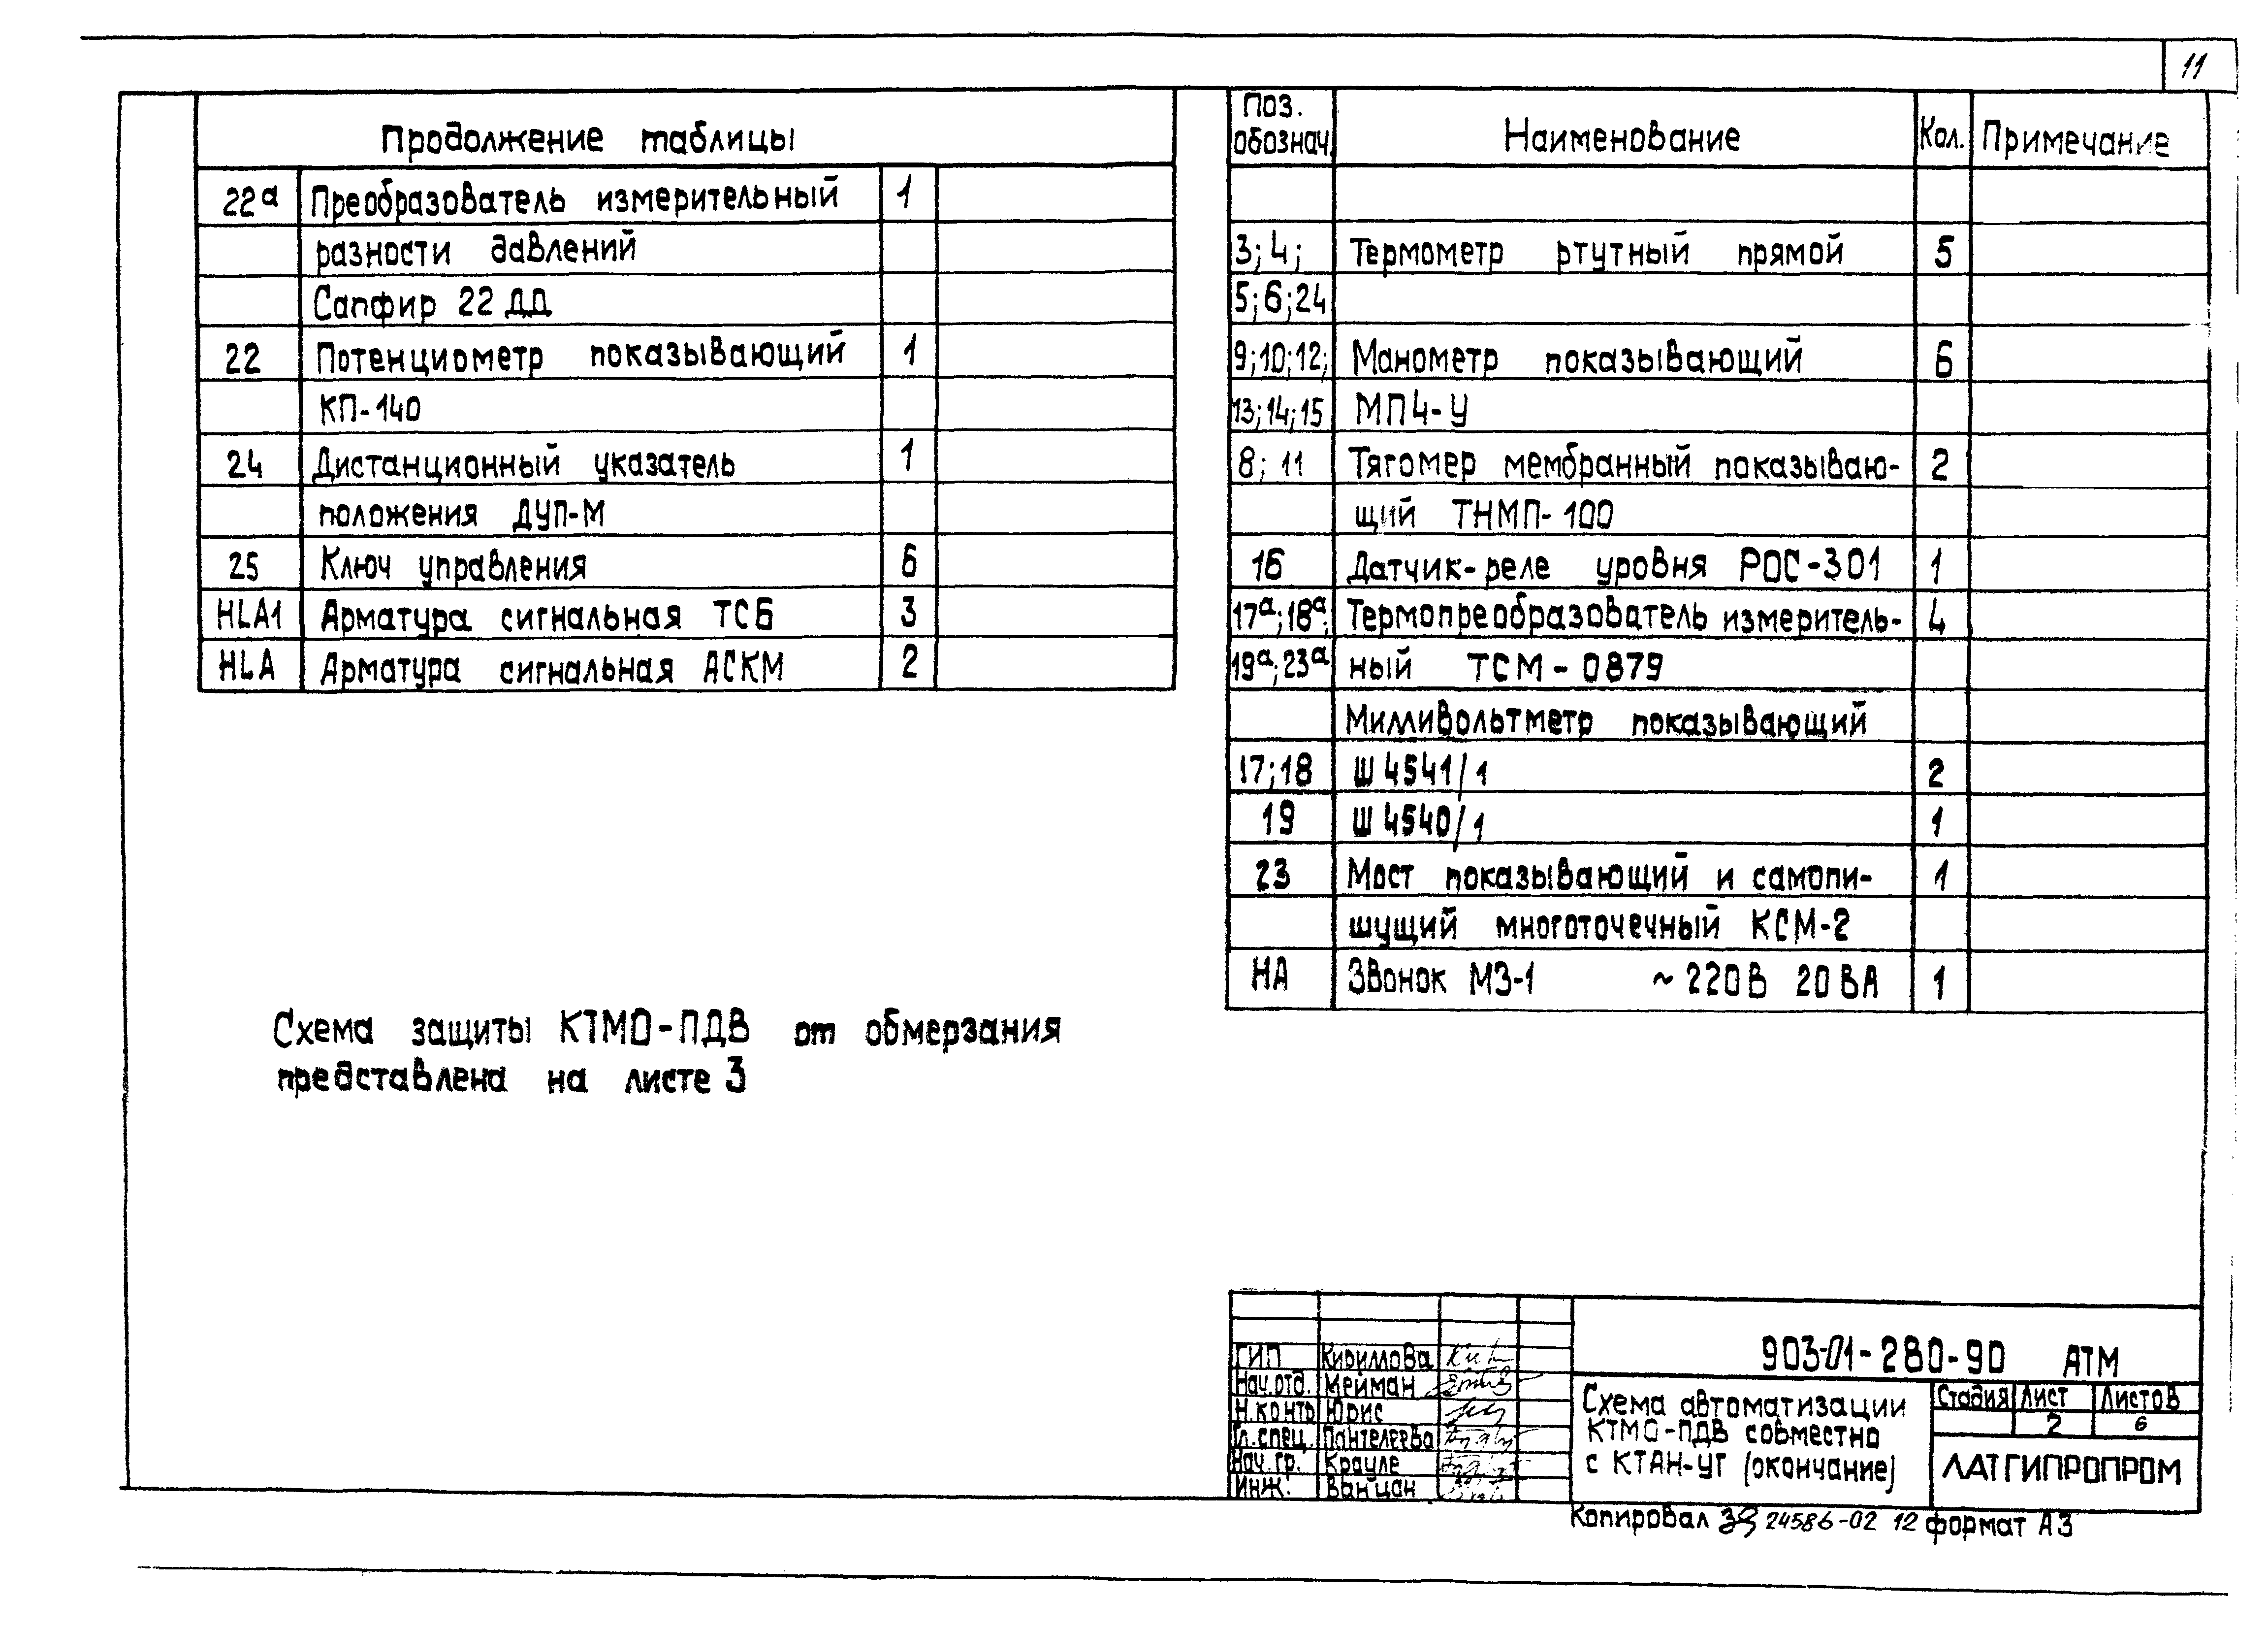 11
Продолжение таблицы
22а Преобразователь измерительный 1
разности давлений
Сапфир 22 ДД
22 Потенциометр показывающий 1
КП-140
24 Дистанционный указатель 1
положения ДУП-М
25 Ключ управления 6
HLA1 Арматура сигнальная ТСБ 3
HLA Арматура сигнальная АСКМ 2
Схема защиты КТМО-ПДВ от обмерзания
представлена на листе 3
Поз.
обознач. Наименование Кол. Примечание
3; 4; Термометр ртутный прямой 5
5; 6; 24
9; 10; 12; Манометр показывающий 6
13; 14; 15 МП4-У
8; 11 Тягомер мембранный показываю- 2
щий ТНМП-100
16 Датчик-реле уровня РОС-301 1
17а; 18а; Термопреобразователь измеритель- 4
19а; 23а ный ТСМ-0879
Милливольтметр показывающий
17; 18 Ш 4541/1 2
19 Ш 4540/1 1
23 Мост показывающий и самопи- 1
шущий многоточечный КСМ-2
НА Звонок МЗ-1 ~220В 20ВА 1
903-01-280-90 АТМ
ГИП Кириллова
Нач.отд. Мейман
Н.контр Юрис
Гл.спец. Пантелеева
Нач.гр. Крауле
Инж. Ванцан
Схема автоматизации
КТМО-ПДВ совместно
с КТАН-УГ (окончание)
Стадия Лист Листов
2 6
ЛАТГИПРОПРОМ
Копировал 24586-02 12 формат А3